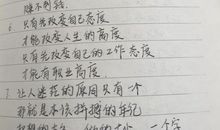 赚不到钱.
6. 只有先改变自己态度
才能改变人生的高度
只有先改变自己的工作态度
才能有职业高度.
7. 让人迷茫的原因只有一个
那就是本该拼搏的年纪
一个字